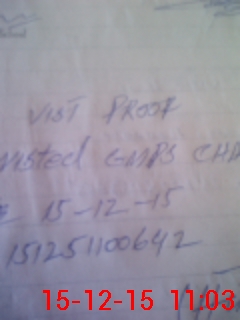 VIST PROOF
visited GMPS CHA
15-12-15
151251100642
15-12-15 11:03